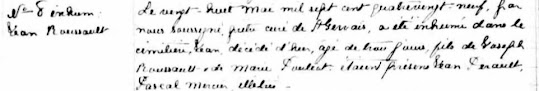 No 8 inhum.
Jean Roussault
Le vingt-huit mai mil sept cent quatrevingt-neuf, par
nous soussigné, prêtre curé de St Gervais, a été inhumé dans le
cimetière, Jean, décédé d'hier, agé de trois jours, fils de Joseph
Roussault & de Marie Pouliot. étaient présens Jean Perault,
Pascal Mercier,